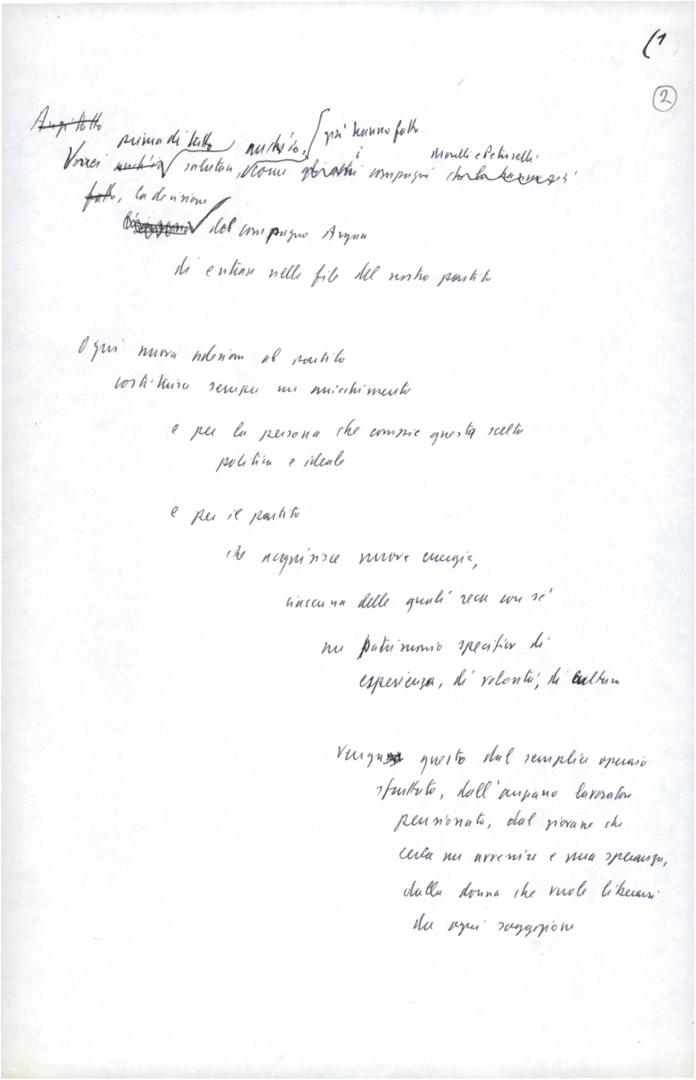 (1
2
Anzitutto
prima di tutto anch'io, già hanno fatto
Vorrei anch'io salutare, come gli altri i compagni Morelli e Petruselli
fatto, la decisione
del compagno Argan
di entrare nelle file del nostro partito
Ogni nuova adesione al partito
costituisce sempre un arricchimento
e per la persona che compie questa scelta
politica e ideale
e per il partito
che acquisisce nuove energie,
ciascuna delle quali reca con sé
un patrimonio specifico di
esperienza, di volontà, di cultura
Venga questo dal semplice operaio
sfruttato, dall'anziano lavoratore
pensionato, dal giovane che
cerca un avvenire e una speranza,
dalla donna che vuole liberarsi
da ogni soggezione